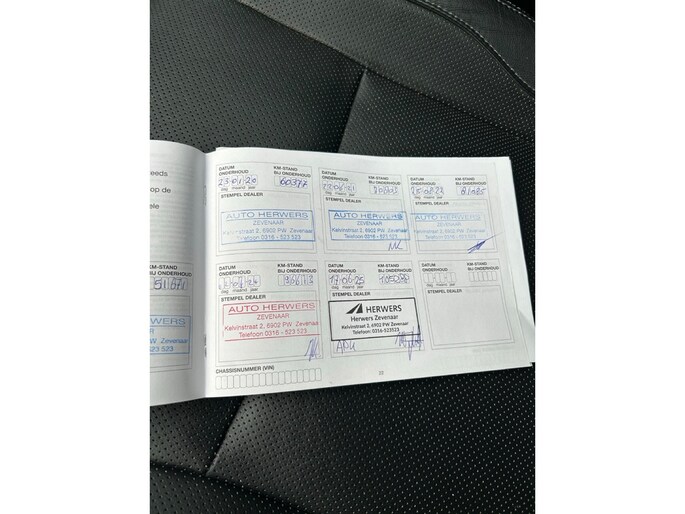 eeds
op de
ele
KM-STAND
BIJ ONDERHOUD
51671
WERS
02 PW Zevenaar
523 523
DATUM ONDERHOUD
KM-STAND BIJ ONDERHOUD
23-01-20
60377
dag maand jaar
STEMPEL DEALER
AUTO HERWERS
ZEVENAAR
Kelvinstraat 2, 6902 PW Zevenaar
Telefoon 0316 - 523 523
DATUM ONDERHOUD
KM-STAND BIJ ONDERHOUD
dag maand jaar
STEMPEL DEALER
AUTO HERWERS
ZEVENAAR
Kelvinstraat 2, 6902 PW Zevenaar
Telefoon 0316 - 523 523
DATUM ONDERHOUD
KM-STAND BIJ ONDERHOUD
dag maand jaar
STEMPEL DEALER
AUTO HERWERS
ZEVENAAR
Kelvinstraat 2, 6902 PW Zevenaar
Telefoon 0316 - 523 523
DATUM ONDERHOUD
KM-STAND BIJ ONDERHOUD
dag maand jaar
STEMPEL DEALER
AUTO HERWERS
ZEVENAAR
Kelvinstraat 2, 6902 PW Zevenaar
Telefoon 0316 - 523 523
DATUM ONDERHOUD
KM-STAND BIJ ONDERHOUD
17-06-25
dag maand jaar
STEMPEL DEALER
HERWERS
Herwers Zevenaar
Kelvinstraat 2, 6902 PW Zevenaar
Telefoon: 0316-523523
DATUM ONDERHOUD
KM-STAND BIJ ONDERHOUD
dag maand jaar
STEMPEL DEALER
CHASSISNUMMER (VIN)